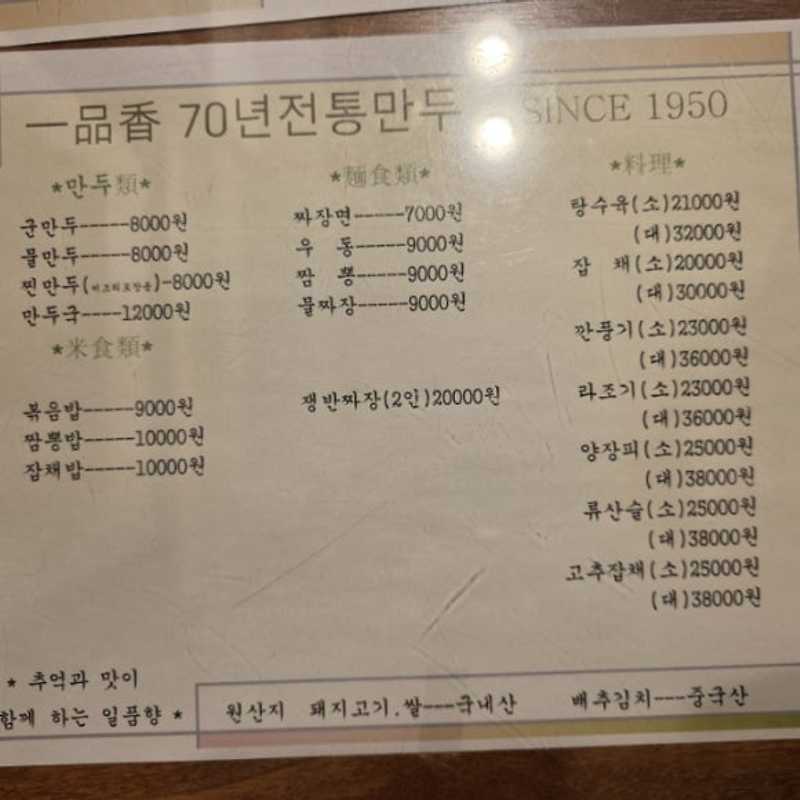 一品香 70년전통만두 SINCE 1950
*만두類*
군만두-----8000원
물만두-----8000원
찐만두( )-8000원
만두국----12000원
*米食類*
볶음밥-----9000원
짬뽕밥-----10000원
잡채밥-----10000원
*麵食類*
짜장면-----7000원
우 동-----9000원
짬 뽕-----9000원
물짜장-----9000원
쟁반짜장(2인)20000원
*料理*
탕수육(소)21000원
(대)32000원
잡 채(소)20000원
(대)30000원
깐풍기(소)23000원
(대)36000원
라조기(소)23000원
(대)36000원
양장피(소)25000원
(대)38000원
류산슬(소)25000원
(대)38000원
고추잡채(소)25000원
(대)38000원
* 추억과 맛이
함께 하는 일품향 *
원산지 돼지고기.쌀---국내산 배추김치---중국산